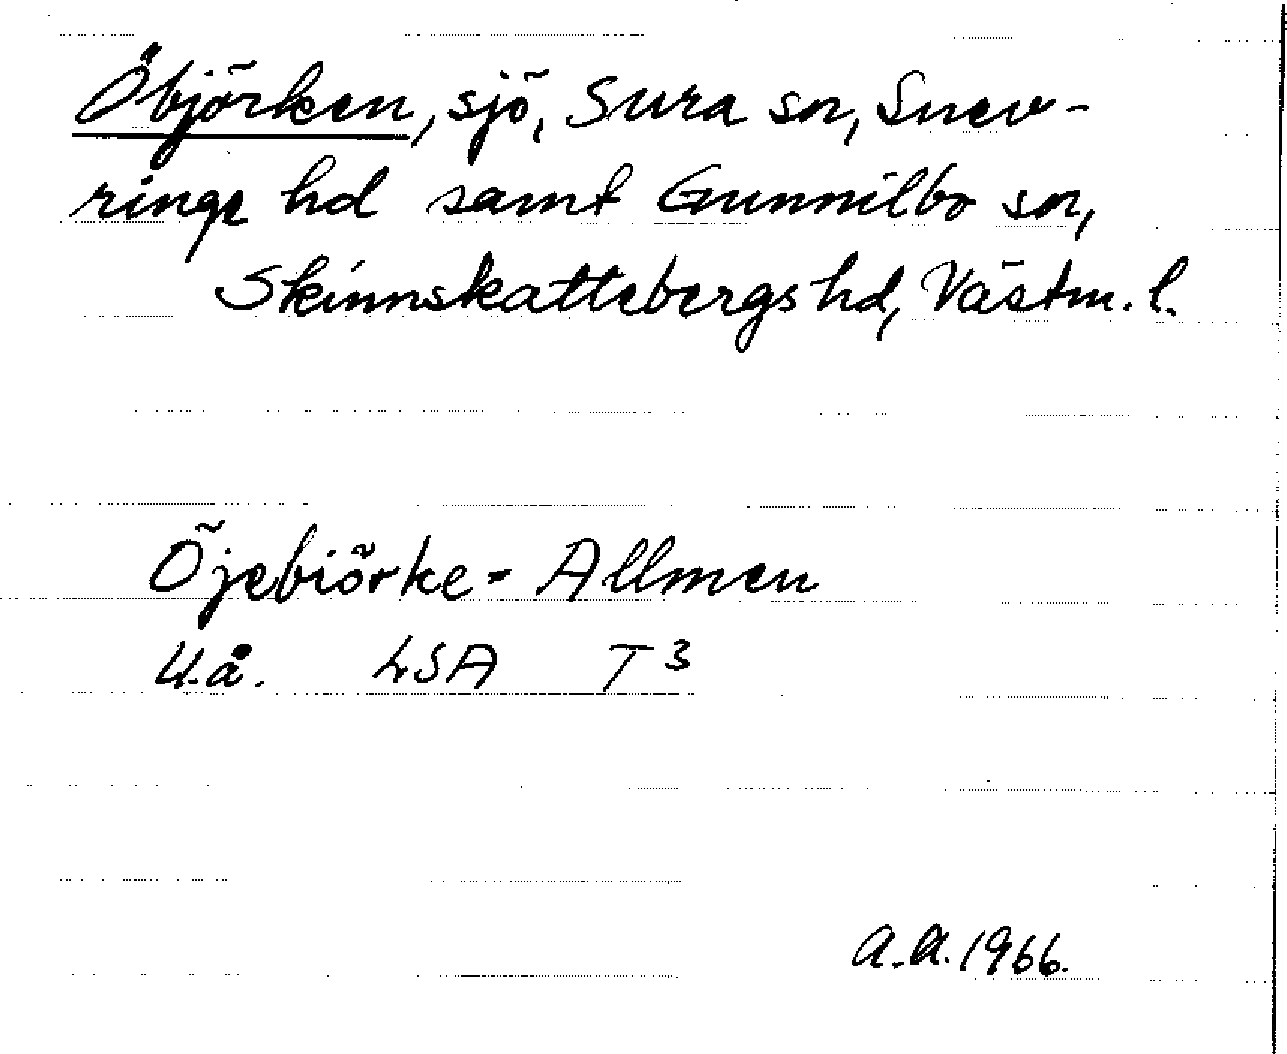 Öbjörken, sjö, Sura sn, Snev-
ringe hd samt Gunnilbo sn,
Skinnskattebergs hd, Västm. l.
Öjebiörke-Allmen
U.å. LSA T 3
A.A. 1966.